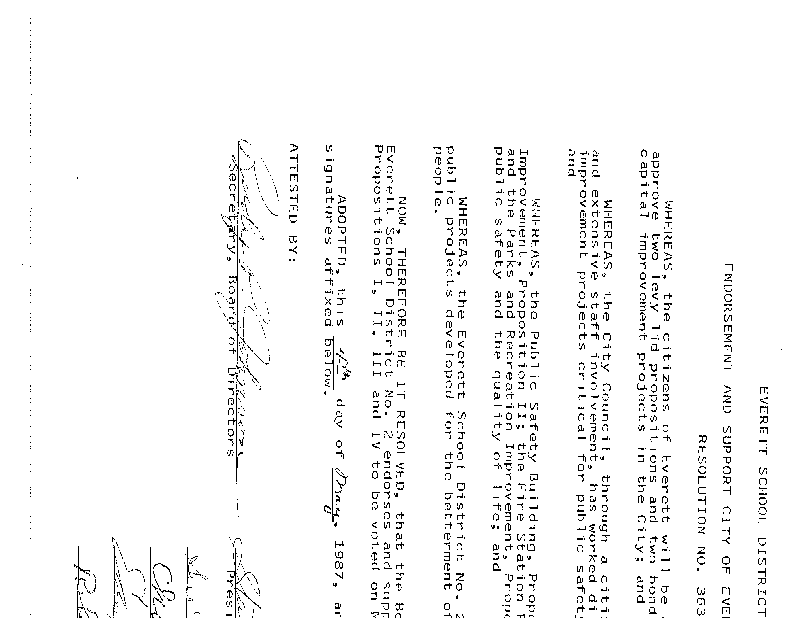 EVERETT SCHOOL DISTRICT
ENDORSEMENT AND SUPPORT CITY OF EVE
RESOLUTION NO. 363
WHEREAS, the citizens of Everett will be
approve two levy lid propositions and two bond
capital improvement projects in the City; and
WHEREAS, the City Council, through a citi
and extensive staff involvement, has worked di
improvement projects critical for public safet
and
WHEREAS, the Public Safety Building, Prop
Improvement, Proposition II; the Fire Station
and the Parks and Recreation Improvement, Prop
public safety and the quality of life; and
WHEREAS, the Everett School District No. 2
public projects developed for the betterment of
people.
NOW, THEREFORE BE IT RESOLVED, that the Bo
Everett School District No. 2 endorses and supp
Propositions I, II, III and IV to be voted on
ADOPTED, this day of May, 1987, an
signatures affixed below.
ATTESTED BY:
Secretary, Board of Directors
Presi